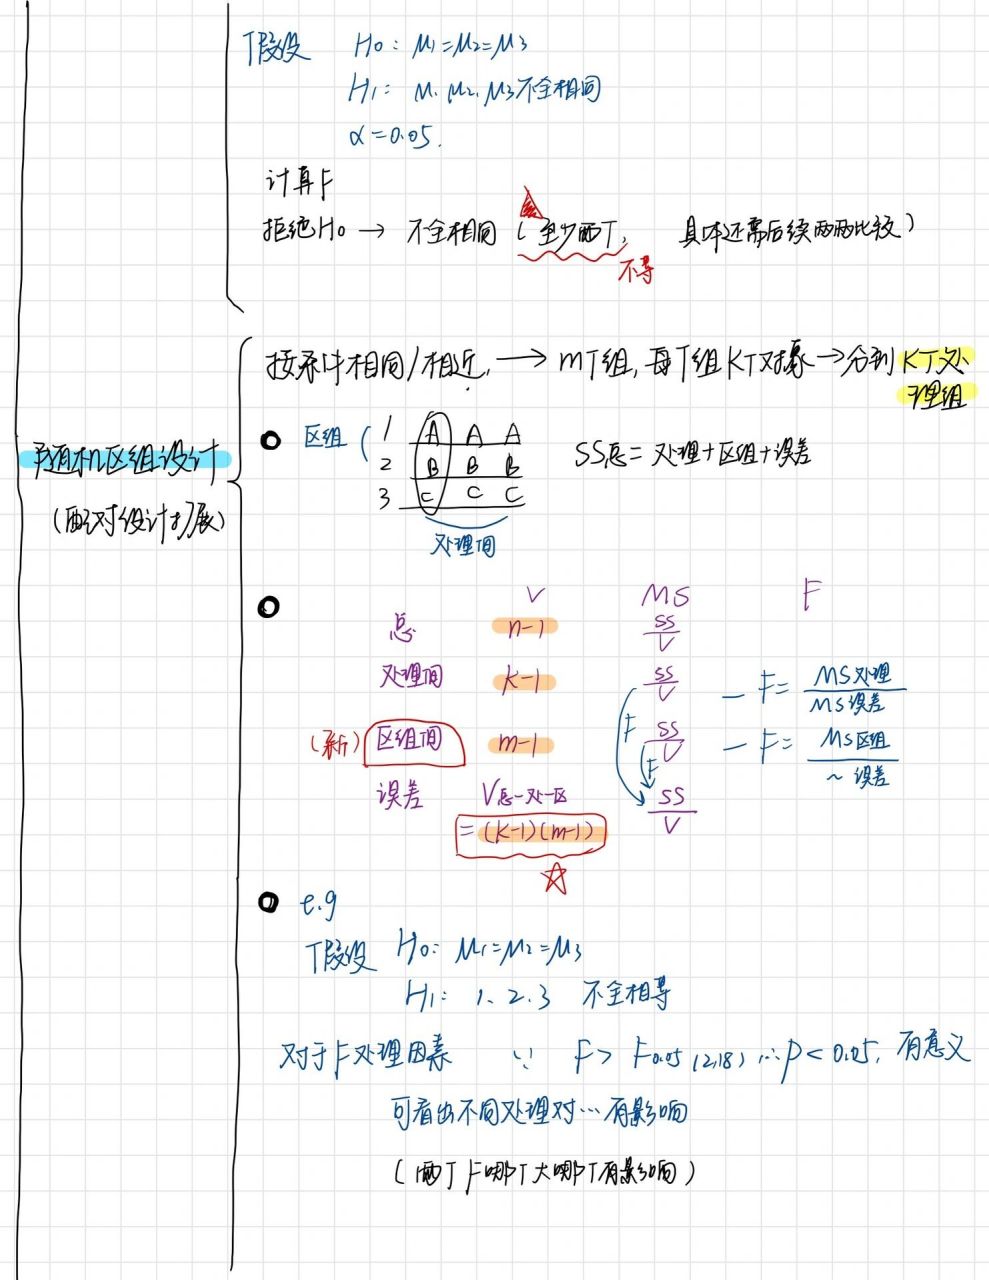 假设 H₀: μ₁=μ₂=μ₃
H₁: μ₁ μ₂, μ₃不全相同
α=0.05.
计算F
拒绝H₀ → 不全相同 (至少两个, 具体还需后续两两比较)
不等
按条件相同/相近, → m个组, 每个组K个对象 → 分到K个处
理组
随机区组设计
(配对设计扩展)
区组 ( 1 A A A
2 B B B
3 C C C
处理间
SS总 = 处理+区组+误差
V MS F
总 n-1 SS/V
处理间 k-1 SS/V — F= MS处理/MS误差
(新) 区组间 m-1 F SS/V — F= MS区组/~误差
F
误差 V总-处-区 SS/V
=(k-1)(m-1)
e.g
假设 H₀: μ₁=μ₂=μ₃
H₁: 1、2、3 不全相等
对于F处理因素 ∵ F > F0.05 (2,18) ∴ P < 0.05, 有意义
可看出不同处理对…有影响
(两个F哪个大哪个有影响)